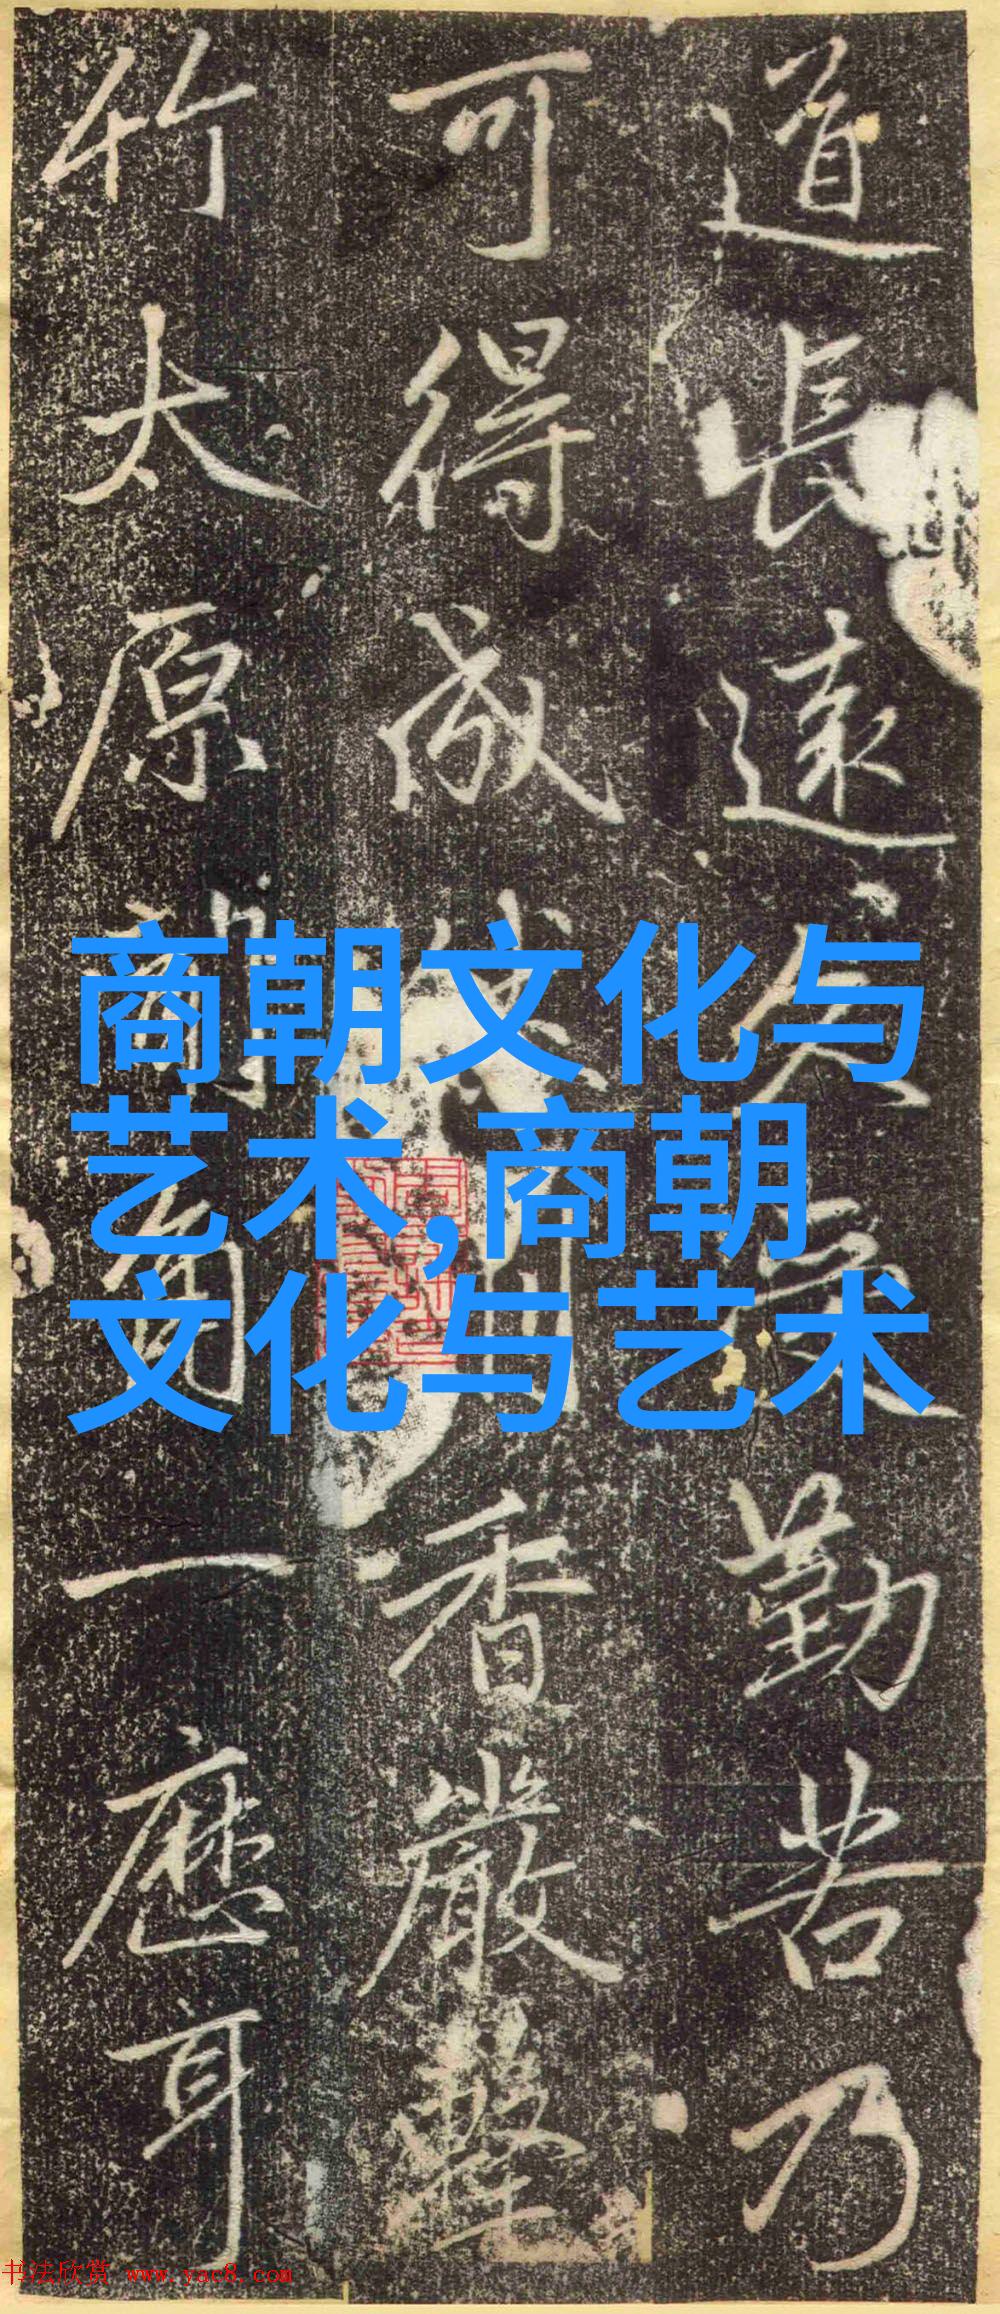 道長遠久受勤苦乃
可得成佛香嚴擊
竹太原一應耳
商朝文化与
艺术,商朝
文化与艺术
书法欣赏 www.yac8.com